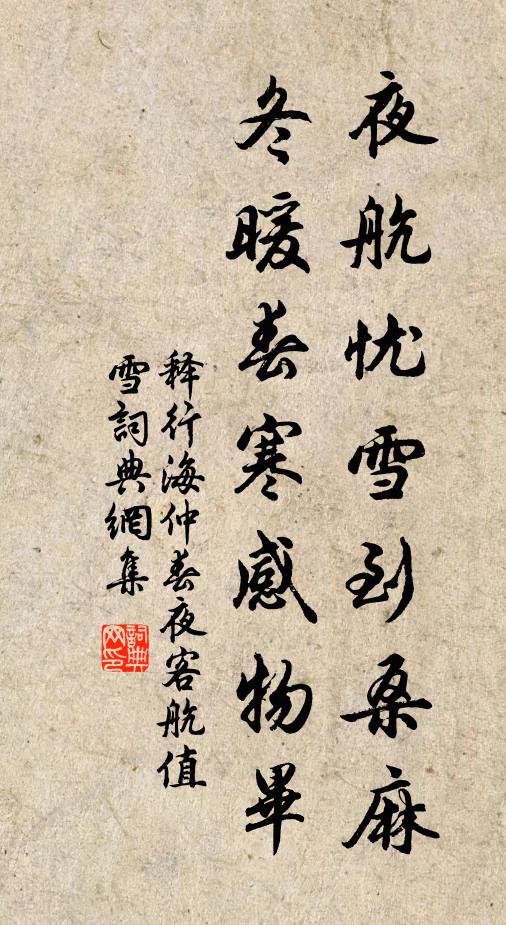 夜航忧雪到桑麻
冬暖春寒感物畢
释行海仲春夜客航值
雪詞典網集
詞典
网印